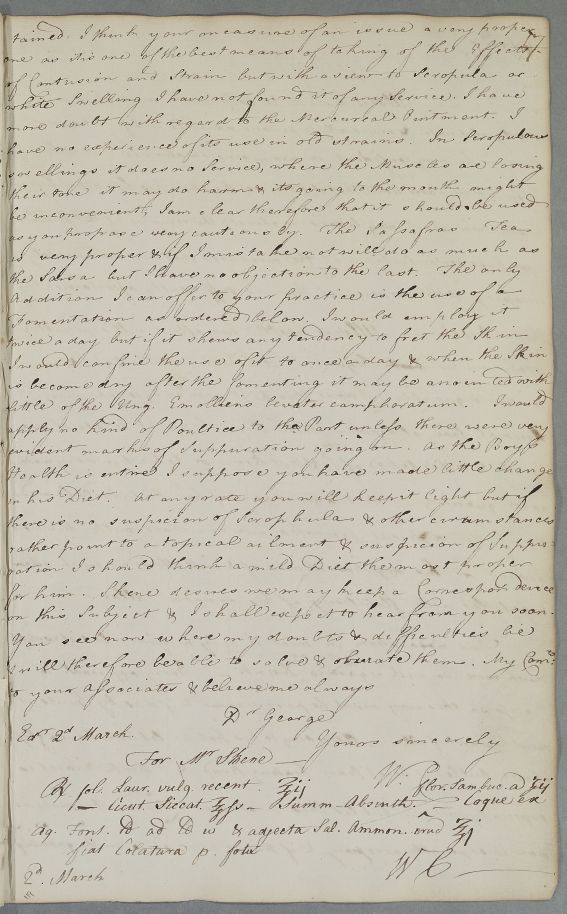 tained. I think your measure of an issue a very proper
one as it is one of the best means of taking of the Effects
of Contusion and Strain but with a view to Scropula or
white Swelling I have not found it of any Service. I have
more doubt with regard to the Mercureal Ointment. I
have no experience of its use in old strains. In Scropulous
swellings it does no Service, where the Muscles are losing
their tone it may do harm & its going to the mouth might
be inconvenient, I am clear therefore that it should be used
as you propose very cautiously. The Sassafras Tea
is very proper & if I mistake not will do as much as
the Sarsa but I have no objection to the last. The only
Addition I can offer to your practice is the use of a
Fomentation as ordered below. I would employ it
twice a day but if it shews any tendency to fret the Skin
I would confine the use of it to once a day & when the Skin
is become dry after the fomenting it may be anointed with
little of the Ung. Emolliens leviter camphoratum. I would
apply no kind of Poultice to the Part unless there were very
evident marks of Suppuration going on. As the Boy's
Health is entire I suppose you have made little change
in his Diet. At any rate you will keep it light but if
there is no suspicion of Scrophula & other circumstances
rather point to a topical ailment & suspicion of Suppu-
ration I should think a mild Diet the most proper
for him. Skene desires we may keep a Correspondence
on this Subject & I shall expect to hear from you soon.
You see now where my doubts & difficulties lie
& will therefore be able to solve & obviate them. My Com:
to your Associates & believe me always
Dr George
Edr 2d March. Yours sincerely
For Mr Skene W.
℞ fol. Laur. vulg. recent. ℥ij flor. Sambuc. a ℥ij
— Cicut. Siccat. ℥ss — Summ. Absinth. — Coque ex
Aq. Font. ad & adjecta Sal. Ammon. crud ℥j
fiat Colatura p. fotu
2d. March W C